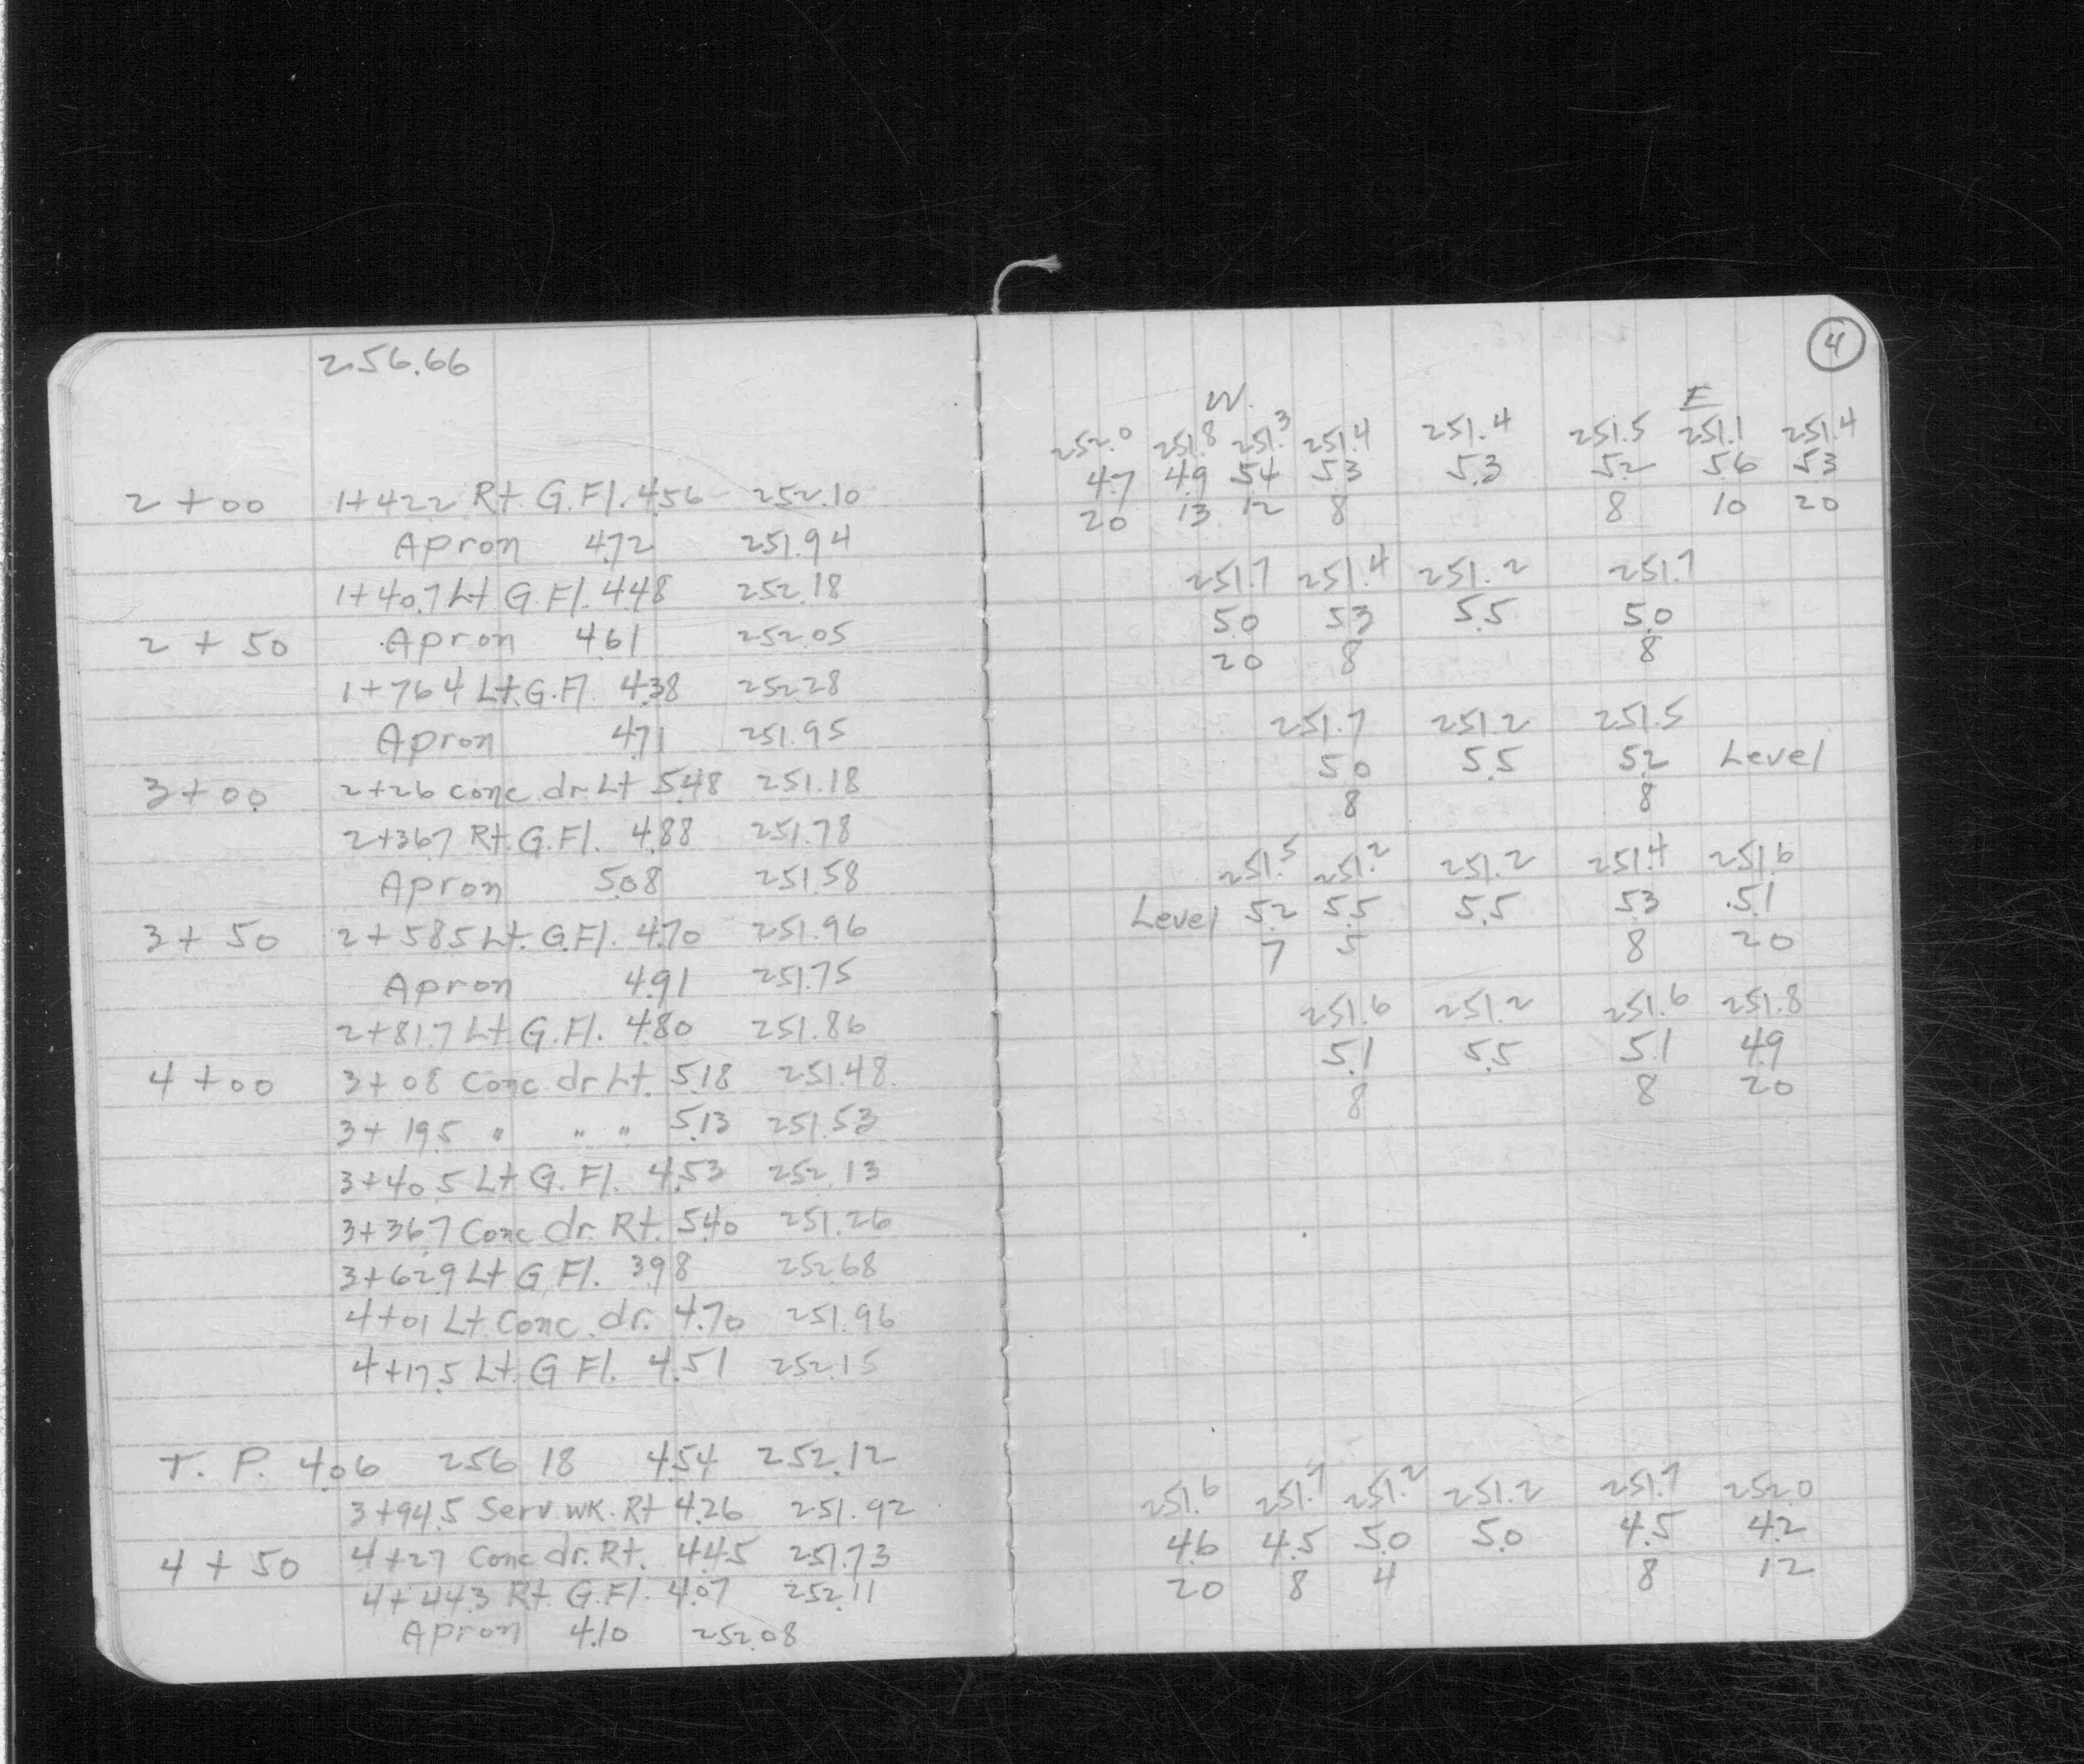 256.66
2+00 1+42.2 Rt. G.Fl. 4.56 252.10
Apron 4.72 251.94
1+40.7 Lt G.Fl. 4.48 252.18
2+50 Apron 4.61 252.05
1+76.4 Lt. G.Fl 4.38 252.28
Apron 4.71 251.95
3+00 2+26 conc. dr. Lt 5.48 251.18
2+36.7 Rt. G.Fl. 4.88 251.78
Apron 5.08 251.58
3+50 2+58.5 Lt. G.Fl. 4.70 251.96
Apron 4.91 251.75
2+81.7 Lt G.Fl. 4.80 251.86
4+00 3+08 Conc dr Lt. 5.18 251.48
3+19.5 " " " 5.13 251.53
3+40.5 Lt G.Fl. 4.53 252.13
3+36.7 Conc dr. Rt. 5.40 251.26
3+62.9 Lt G.Fl. 3.98 252.68
4+01 Lt. Conc. dr. 4.70 251.96
4+17.5 Lt. G Fl. 4.51 252.15
T. P. 4.06 256.18 4.54 252.12
3+94.5 Serv. WK. Rt 4.26 251.92
4+50 4+27 Conc dr. Rt. 4.45 251.73
4+44.3 Rt. G.Fl. 4.07 252.11
Apron 4.10 252.08
4
W. E
252.0 251.8 251.3 251.4 251.4 251.5 251.1 251.4
4.7 4.9 5.4 5.3 5.3 5.2 5.6 5.3
20 13 12 8 8 10 20
251.7 251.4 251.2 251.7
5.0 5.3 5.5 5.0
20 8 8
251.7 251.2 251.5
5.0 5.5 5.2 Level
8 8
251.5 251.2 251.2 251.4 251.6
Level 5.2 5.5 5.5 5.3 5.1
7 5 8 20
251.6 251.2 251.6 251.8
5.1 5.5 5.1 4.9
8 8 20
251.6 251.7 251.2 251.2 251.7 252.0
4.6 4.5 5.0 5.0 4.5 4.2
20 8 4 8 12